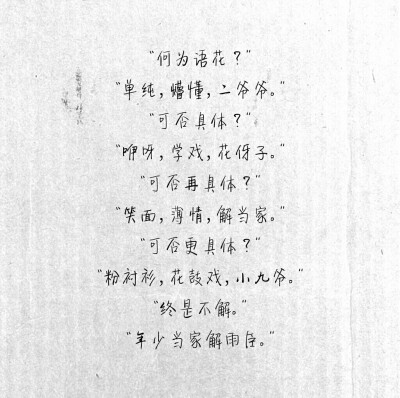 “何为语花？”
“单纯，懵懂，二爷爷。”
“可否具体？”
“咿呀，学戏，花伢子。”
“可否再具体？”
“笑面，薄情，解当家。”
“可否更具体？”
“粉衬衫，花鼓戏，小九爷。”
“终是不解。”
“年少当家解雨臣。”